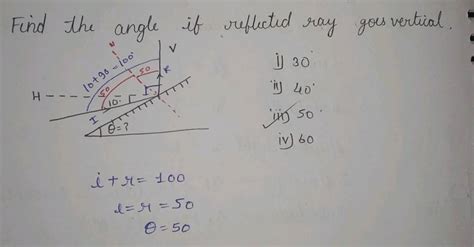 Find the angle if reflected ray goes vertical.
N
V
10+90=100°
50
50
R
H
10°
r
I
θ=?
i) 30°
ii) 40°
iii) 50°
iv) 60
i+r= 100
i=r= 50
θ=50